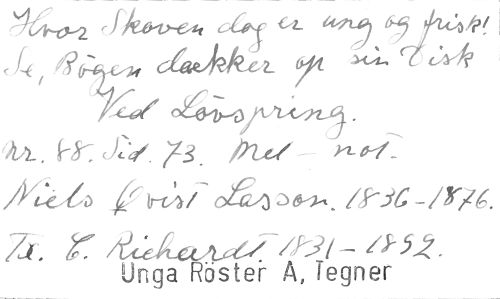 Hvor Skoven dog er ung og frisk!
Se, Bøgen dækker op sin Disk
Ved Lövspring.
Nr. 88. Sid. 73. Mel-not.
Niels Qvist Lasson. 1836-1876.
Tx. C. Richardt. 1831-1892.
Unga Röster A, Tegner